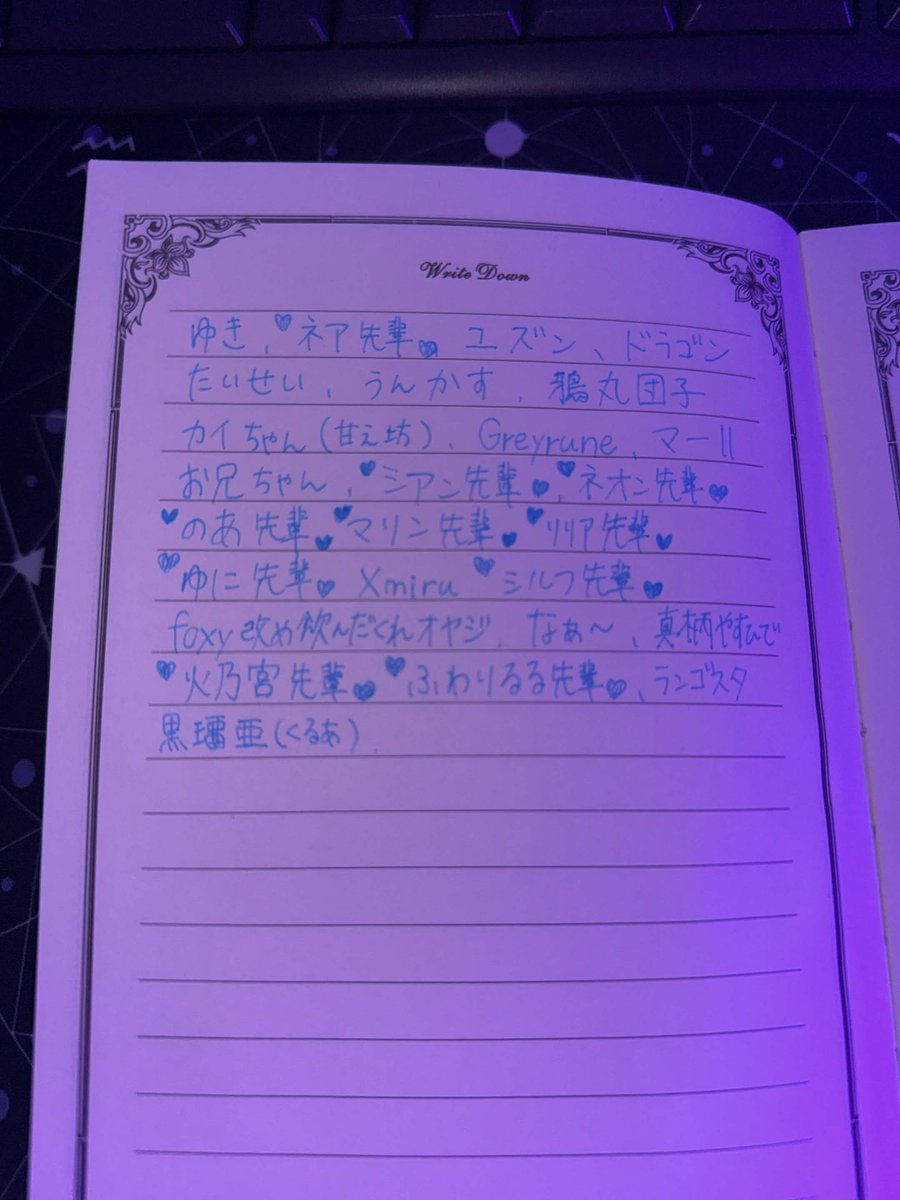 Write Down
ゆき、♥ネア先輩♥ ユズン、ドラゴン
たいせい、うんかす、鴉丸団子
カイちゃん(甘え坊)、Greyrune、マーll
お兄ちゃん、♥シアン先輩♥、♥ネオン先輩♥
♥のあ先輩♥ ♥マリン先輩♥ ♥リリア先輩♥
♥ゆに先輩♥ Xmiru ♥シルフ先輩♥
foxy改め飲んだくれオヤジ、なぁ〜、真柄やすひで
♥火乃宮先輩♥ ♥ふわりるる先輩♥、ランゴスタ
黒瑠亜(くるあ)